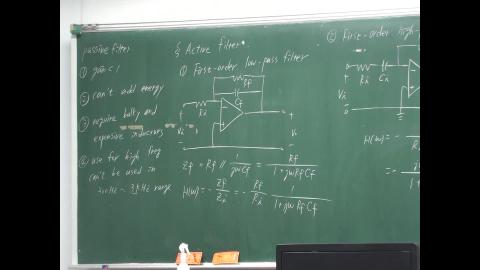 passive filter
① gain < 1
② can't add energy
③ require bulky and
expensive inductors
④ use for high freq
can't be used in
3kHz range
§ Active filter
① First-order low-pass filter
Rf
Cf
Ri
+
Vi
-
+
Vo
-
Zf = Rf // 1/jωCf = Rf/1+jωRfCf
H(ω) = - Zf/Zi = - Rf/Ri 1/1+jωRfCf
② First-order high-
Ri Ci
+
Vi
-
H(ω) = -
= -